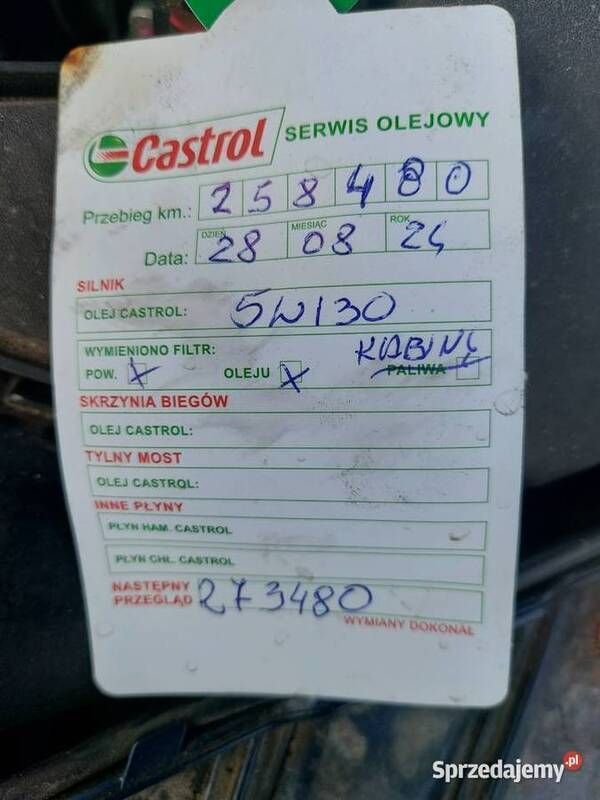 Castrol SERWIS OLEJOWY
Przebieg km.: 258480
DZIEŃ MIESIĄC ROK
Data: 28 08 24
SILNIK
OLEJ CASTROL: 5W130
WYMIENIONO FILTR: KABINY
POW. X OLEJU X PALIWA
SKRZYNIA BIEGÓW
OLEJ CASTROL:
TYLNY MOST
OLEJ CASTROL:
INNE PŁYNY
PŁYN HAM. CASTROL
PŁYN CHŁ. CASTROL
NASTĘPNY PRZEGLĄD 273480
WYMIANY DOKONAŁ
Sprzedajemy.pl